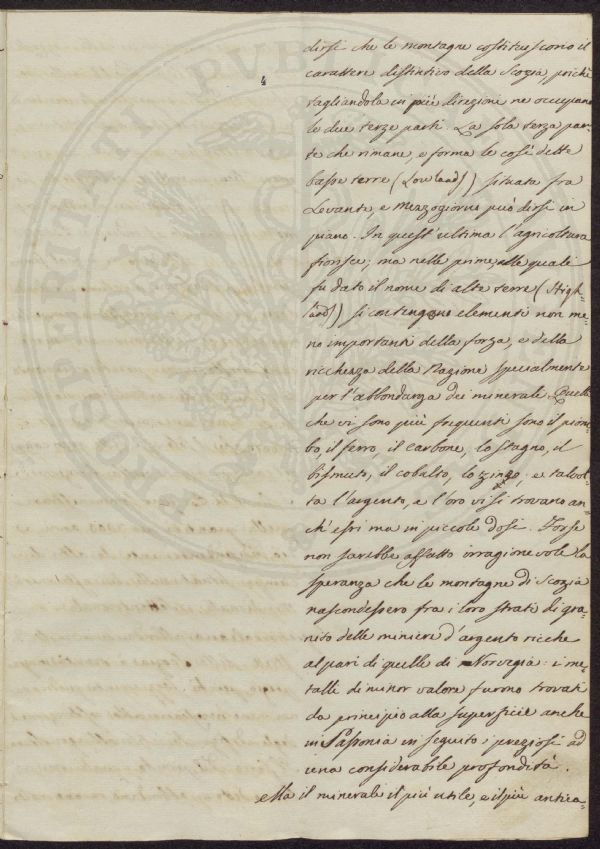 PROSPERITATI PVBLICAE
4
dirsi che le montagne costituiscono il
carattere distintivo della Scozia, poichè
tagliandola in più direzioni ne occupano
le due terze parti. La sola terza par-
te che rimane, e forma le così dette
basse terre (Lowlands) situate fra
Levante, e Mezzogiorno può dirsi in
piano. In quest'ultima l'agricoltura
fiorisce; ma nelle prime, alle quali
fu dato il nome di alte terre (High-
lands) si contengono elementi non me-
no importanti della forza, e della
ricchezza della Nazione specialmente
per l'abbondanza dei minerali. Quelli
che vi sono più frequenti sono il piom-
bo, il ferro, il carbone, lo stagno, il
bismuto, il cobalto, lo zingo, e talvol-
ta l'argento, e l'oro vi si trovano an-
ch'essi ma in piccole dosi. Forse
non sarebbe affatto irragionevole la
speranza che le montagne di Scozia
nascondessero fra i loro strati di gra-
nito delle miniere d'argento ricche
al pari di quelle di Norvegia: i me-
talli di minor valore furono trovati
da principio alla superficie anche
in Sassonia in seguito i preziosi ad
una considerabile profondità.
Ma il minerale il più utile, e il più antica-